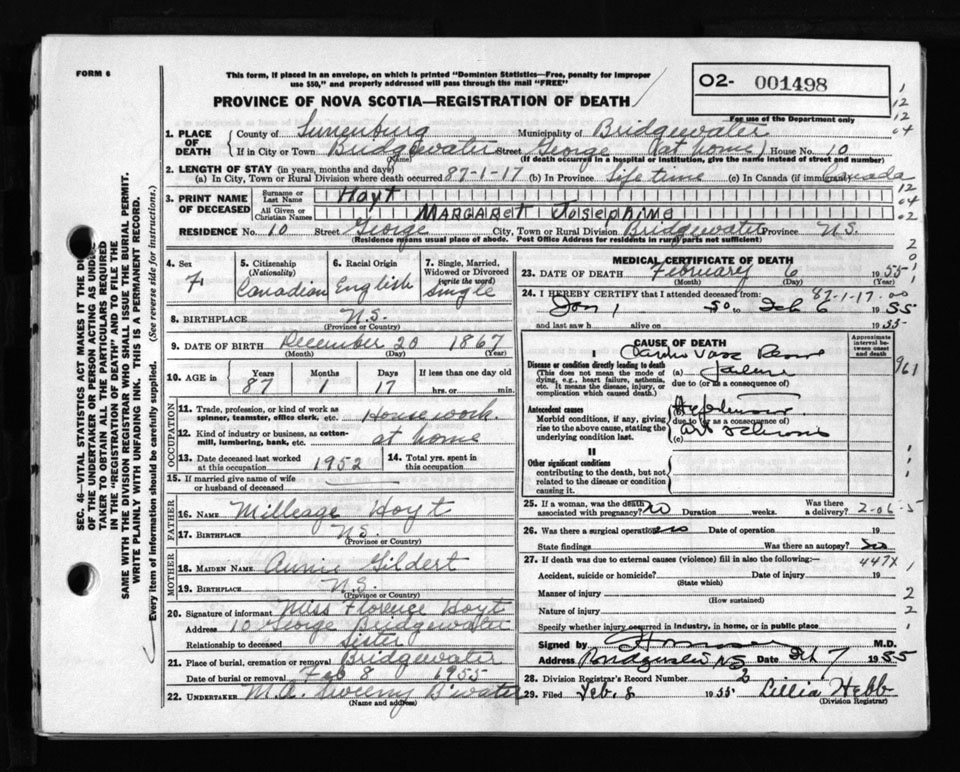 FORM 6
This form, if placed in an envelope, on which is printed "Dominion Statistics—Free, penalty for improper
use $50," and properly addressed will pass through the mail "FREE"
O2- 001498
For use of the Department only
PROVINCE OF NOVA SCOTIA—REGISTRATION OF DEATH
1. PLACE OF DEATH County of Lunenburg Municipality of Bridgewater
If in City or Town Bridgewater Street George (at home) House No. 10
(Name) (If death occurred in a hospital or institution, give the name instead of street and number)
2. LENGTH OF STAY (in years, months and days)
(a) In City, Town or Rural Division where death occurred 87-1-17 (b) In Province Life time (c) In Canada (if immigrant) Canada
3. PRINT NAME OF DECEASED Surname or Last Name Hoyt
All Given or Christian Names MARGARET JOSEPHINE
RESIDENCE No. 10 Street George City, Town or Rural Division Bridgewater Province N.S.
(Residence means usual place of abode. Post Office Address for residents in rural parts not sufficient)
4. Sex F
5. Citizenship (Nationality) Canadian
6. Racial Origin English
7. Single, Married, Widowed or Divorced (write the word) Single
8. BIRTHPLACE N.S.
(Province or Country)
9. DATE OF BIRTH December 20 1867
(Month) (Day) (Year)
10. AGE in Years 87 Months 1 Days 17 If less than one day old hrs. or min.
OCCUPATION
11. Trade, profession, or kind of work as spinner, teamster, office clerk, etc. Housework.
12. Kind of industry or business, as cotton-mill, lumbering, bank, etc. at home
13. Date deceased last worked at this occupation 1952 14. Total yrs. spent in this occupation
15. If married give name of wife or husband of deceased
FATHER
16. NAME Milledge Hoyt
17. BIRTHPLACE N.S.
(Province or Country)
MOTHER
18. MAIDEN NAME Annie Gildert
19. BIRTHPLACE N.S.
(Province or Country)
20. Signature of informant Miss Florence Hoyt
Address 10 George Bridgewater
Relationship to deceased Sister
21. Place of burial, cremation or removal Bridgewater
Date of burial or removal Feb 8 1955
22. UNDERTAKER M.A. Sweeny B'water
(Name and address)
MEDICAL CERTIFICATE OF DEATH
23. DATE OF DEATH February 6 1955
(Month) (Day) (Year)
87-1-17.00
24. I HEREBY CERTIFY that I attended deceased from:
Jan 1 50 to Feb 6 1955
and last saw h alive on 1955-
CAUSE OF DEATH
Approximate interval between onset and death
I
Disease or condition directly leading to death (a) failure
(This does not mean the mode of dying, e.g., heart failure, asthenia, etc. It means the disease, injury, or complication which caused death.)
due to (or as a consequence of)
Antecedent causes
Morbid conditions, if any, giving rise to the above cause, stating the underlying condition last.
due to (or as a consequence of)
(c)
II
Other significant conditions
contributing to the death, but not related to the disease or condition causing it.
25. If a woman, was the death associated with pregnancy? No Duration weeks. Was there a delivery? 2-06-5
26. Was there a surgical operation no Date of operation 19
State findings Was there an autopsy? no
27. If death was due to external causes (violence) fill in also the following:— 447X
Accident, suicide or homicide? Date of injury 19
(State which)
Manner of injury 2
(How sustained)
Nature of injury 2
Specify whether injury occurred in industry, in home, or in public place
Signed by M.D.
Address Bridgewater N.S Date Feb 7 1955
28. Division Registrar's Record Number
29. Filed Feb. 8 1955 Lillia Hebb
(Division Registrar)
SEC. 46—VITAL STATISTICS ACT MAKES IT THE
OF THE UNDERTAKER OR PERSON ACTING AS
TAKER TO OBTAIN ALL THE PARTICULARS REQUIRED
IN THE "REGISTRATION OF DEATH" AND TO FILE THE
SAME WITH THE DIVISION REGISTRAR WHO SHALL ISSUE THE BURIAL PERMIT.
WRITE PLAINLY WITH UNFADING INK. THIS IS A PERMANENT RECORD.
Every item of information should be carefully supplied. (See reverse side for instructions.)